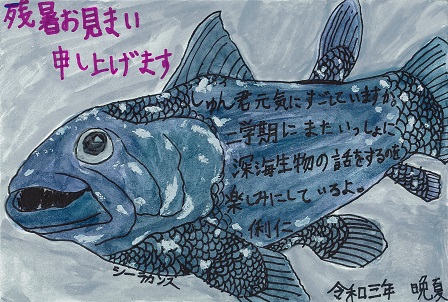 残暑お見まい
申し上げます
しゅん君元気にすごていますか。
二学期にまたいっしょに
深海生物の話をするのを
楽しみにしているよ。
俐仁
シーラカンス
令和三年 晩夏